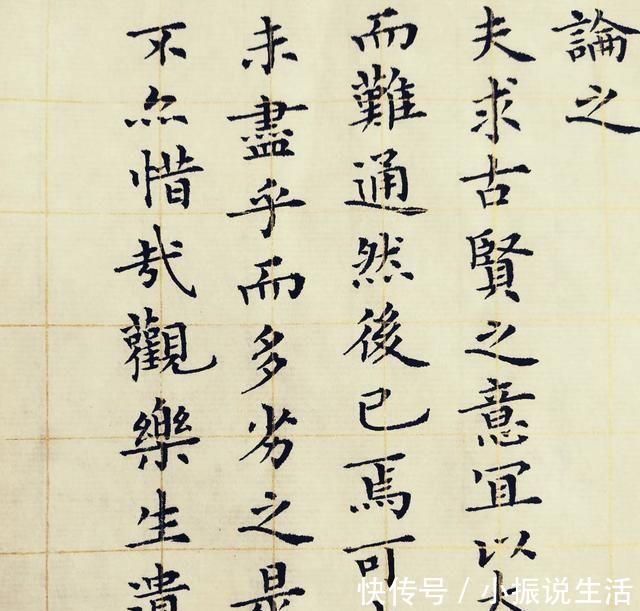 論之
夫求古賢之意宜以大
而難通然後已焉可
未盡乎而多劣之是
不亦惜哉觀樂生遺
快传号 / 小振说生活